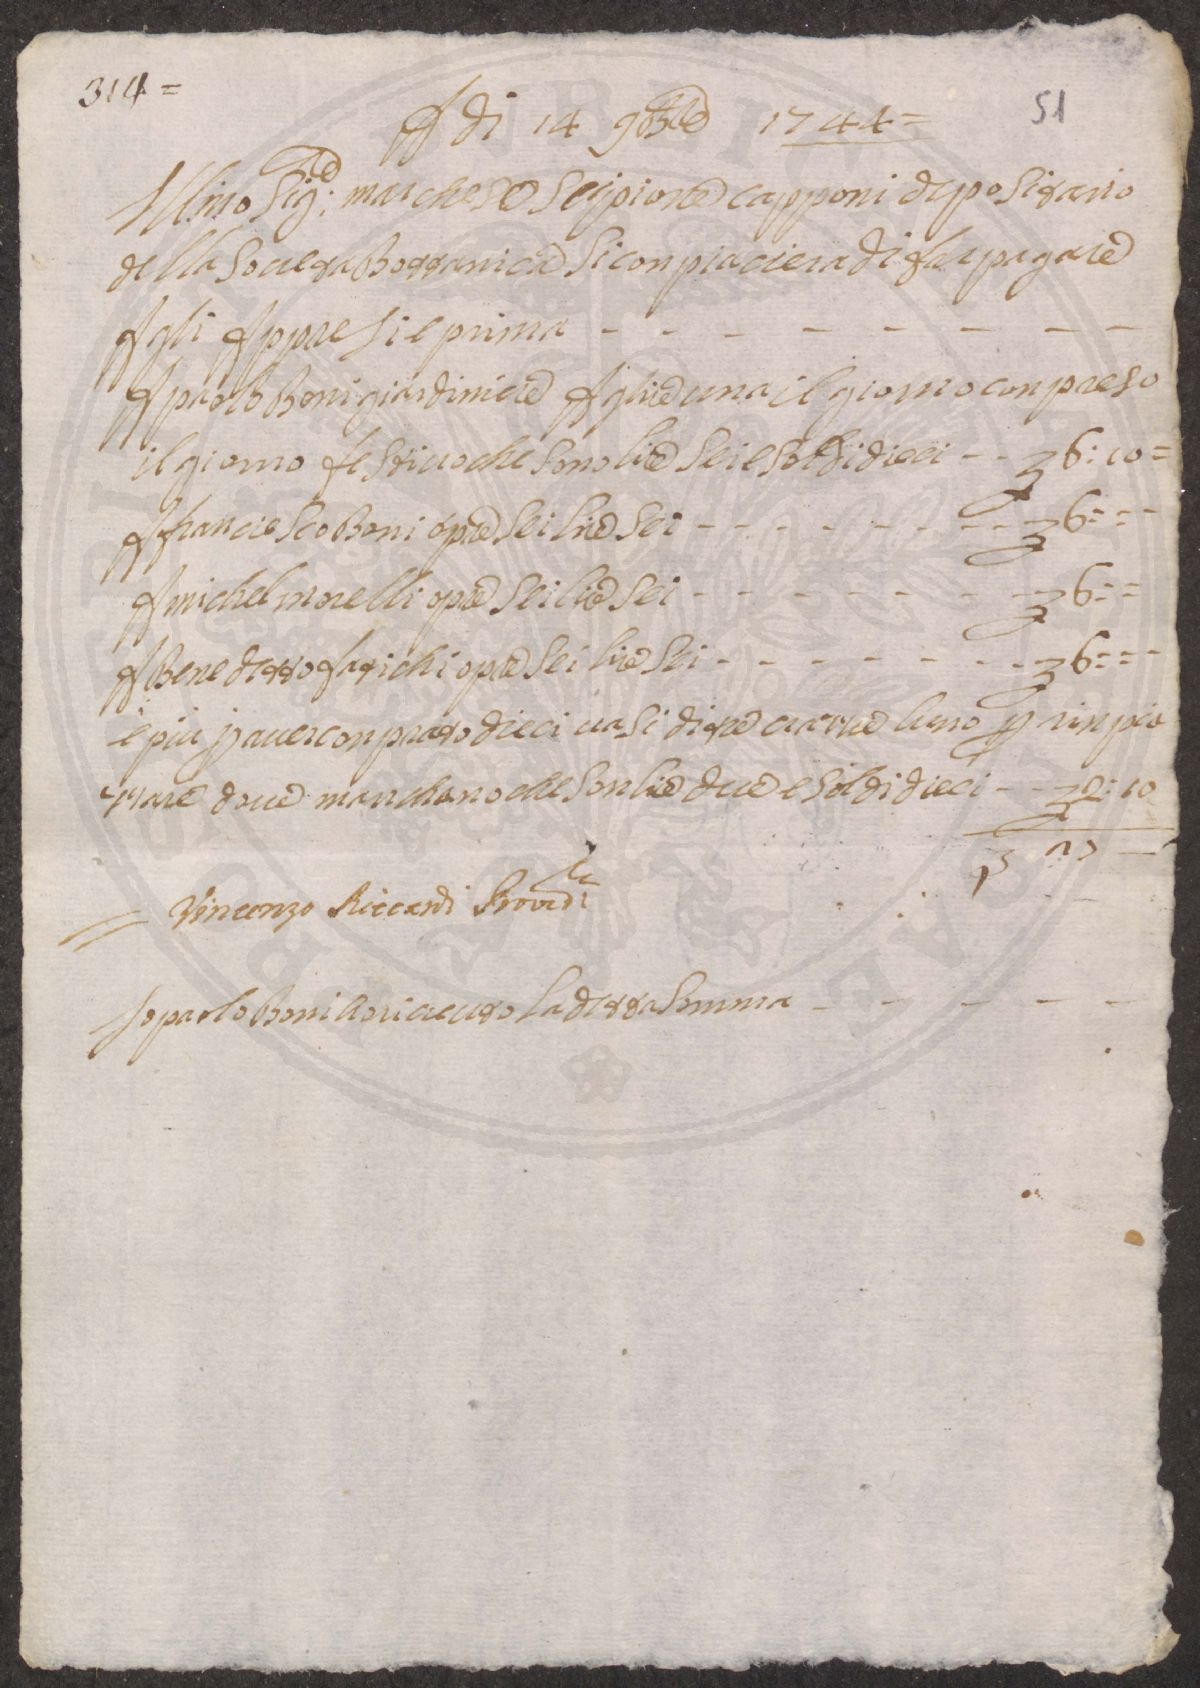 314=
51
A di 14 9bre 1744=
Illmo Sig:re marchese Scipione capponi depositario
della Socueta Bottanica Si conpiaciera di far pagare
A gli Appresi e prima
A paolo Boni giardiniere A lire una il giorno conpreso
il giorno festiuo che sono lire Sei e Soldi dieci 6:10=
A francescho Boni opre Sei lire Sei 6:=
A michel morelli opre Sei lire Sei 6:=
A Benedetto fatichi opre Sei lire Sei 6:=
e piu p auer conprato dieci uasi di tre crazie luno p
doue manchano che son lire due e Soldi dieci 2:10
Vincenzo Riccardi Provedre
Io paolo Boni o riceuuto La detta Somma